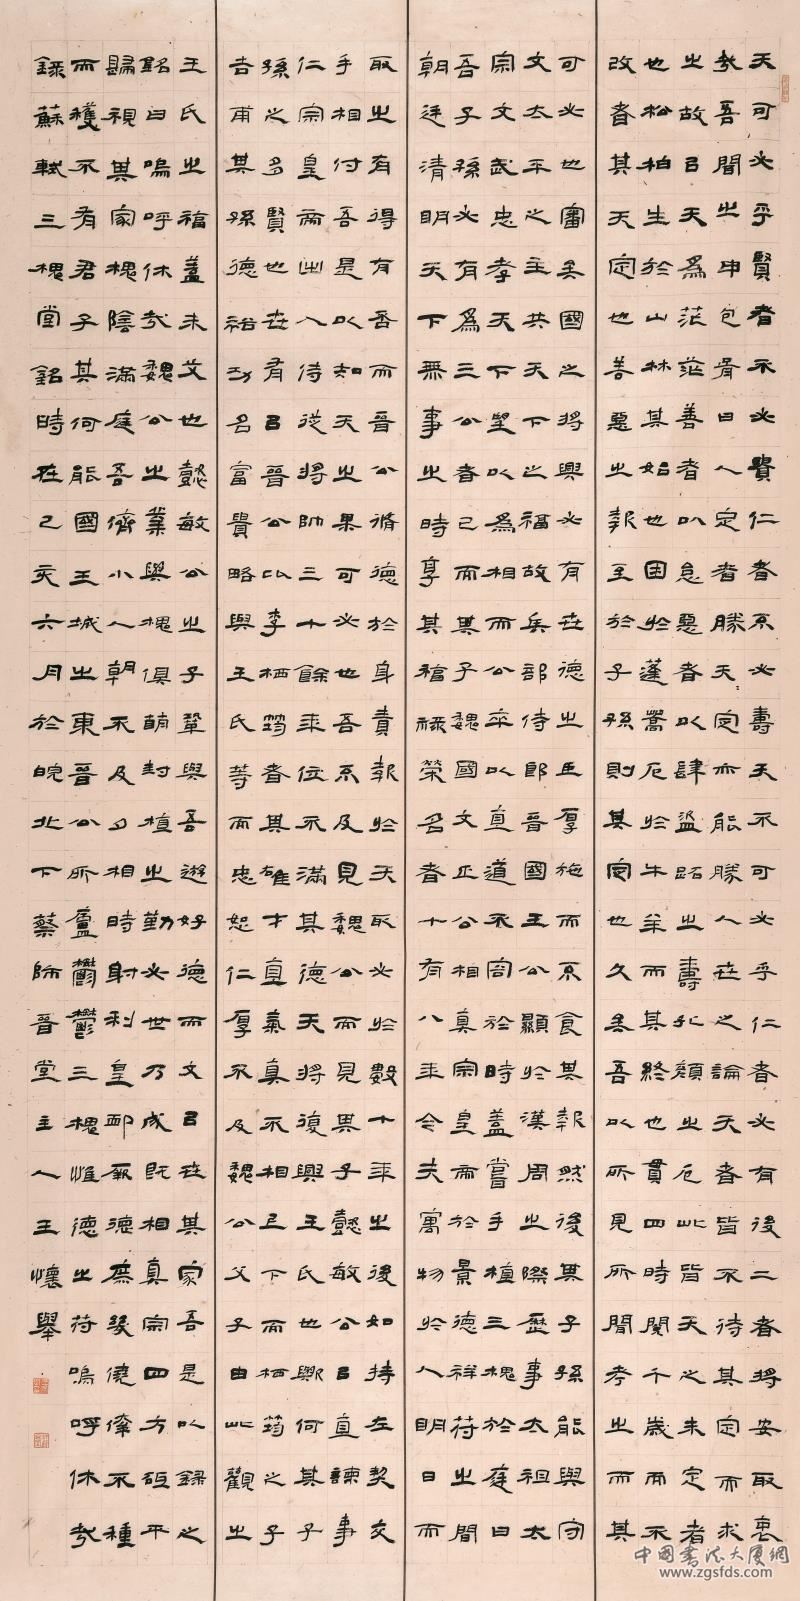 天可必乎賢者不必貴仁者不必壽天不可必乎仁者必有後二者將安取衷
哉吾聞之申包胥曰人定者勝天定亦能勝人世之論天者皆不待其定而求
之故以天為茫茫善者以怠惡者以肆盜跖之壽孔顏之厄此皆天之未定者
也松柏生於山林其始也困於蓬蒿厄於牛羊而其終也貫四時閱千歲而不
改者其天定也善惡之報至於子孫則其定也久矣吾以所見所聞考之而其
可必也審矣國之將興必有世德之臣厚施而不食其報然後其子孫能與守
文太平之主共天下之福故兵部侍郎晉國王公顯於漢周之際歷事太祖太
宗文武忠孝天下望以為相而公卒以直道不容於時蓋嘗手植三槐於庭曰
吾子孫必有為三公者已而其子魏國文正公相真宗皇帝於景德祥符之間
朝廷清明天下無事之時享其福祿榮名者十有八年今夫寓物於人明日而
取之有得有否而晉公脩德於身責報於天取必於數十年之後如持左契交
手相付吾是以知天之果可必也吾不及見魏公而見其子懿敏公以直諫事
仁宗皇帝出入侍從將帥三十餘年位不滿其德天將復興王氏也歟何其子
孫之多賢也世有以晉公比李栖筠者其雄才直氣真不相上下而栖筠之子
吉甫其孫德裕功名富貴略與王氏等而忠恕仁厚不及魏公父子由此觀之
王氏之福蓋未艾也懿敏公之子鞏與吾遊好德而文以世其家吾是以錄之
銘曰嗚呼休哉魏公之業與槐俱萌封植之勤必世乃成既相真宗四方砥平
歸視其家槐陰滿庭吾儕小人朝不及夕相時射利皇卹厥德庶幾僥倖不種
而穫不有君子其何能國王城之東晉公所廬鬱鬱三槐惟德之符嗚呼休哉
錄蘇軾三槐堂銘時在己亥六月於皖北下蔡師晉堂主人王懷舉
中國書法大廈網
www.zgsfds.com